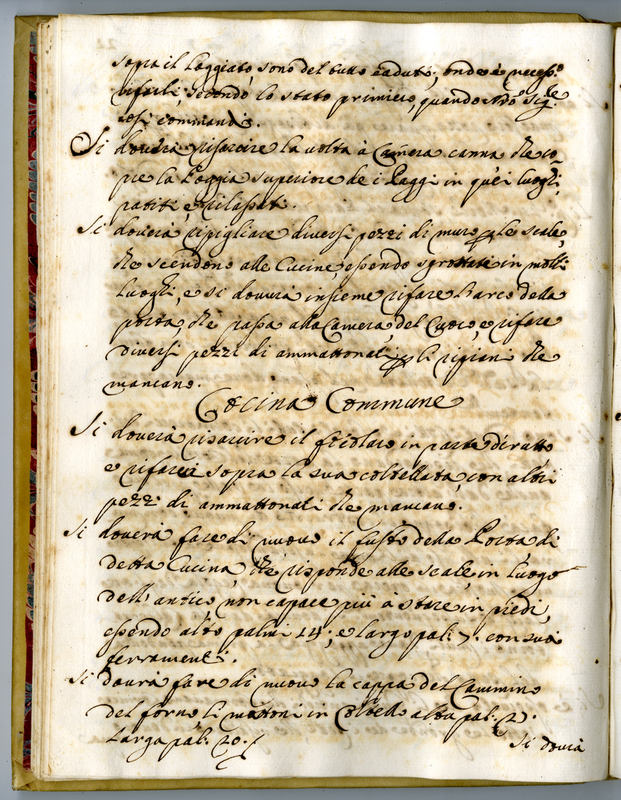 sopra il Loggiato, sono del tutto caduti, onde è necess.o
rifarli, secondo lo stato primiero, quando
così commandi.
Si dovrà risarcire la volta à Camera canna che co-
pre la Loggia superiore de i Paggi in quei luoghi,
patiti, e rilassati.
Si doverà ripigliare diversi pezzi di muro per le scale,
che scendono alle Cucine, essendo sgrottate in molti
luoghi, e si dovrà insieme rifare l'arco della
porta che passa alla Camera del Cuoco, e rifare
diversi pezzi di ammattonati per li ripiani che
mancano.
Cocina Commune
Si doverà risarcire il focolare in parte diruto
e rifarci sopra la sua coltellata, con altri
pezzi di ammattonati che mancano.
Si doverà fare di nuovo il fusto della Porta di
detta Cucina che risponde alle scale, in luogo
dell'antico non capace più à stare in piedi,
essendo alto palmi 14; e largo pal: 7. con sua
ferramenti.
Si dovrà fare di nuovo la cappa del Cammino
del forno li mattoni in Coltello alta pal: 12.
Larga pal: 20.
Si dovrà